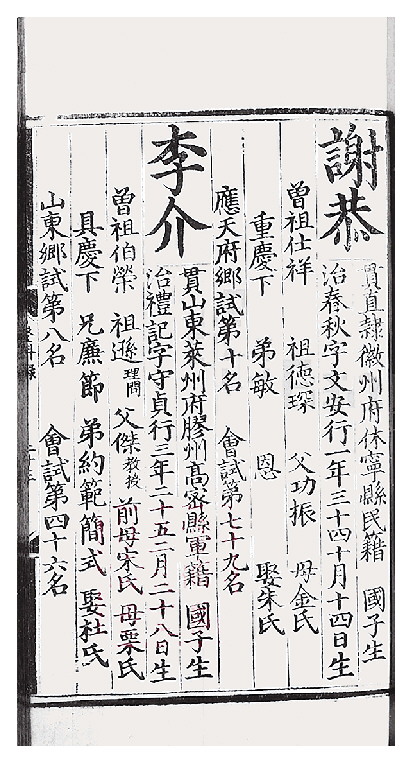 謝恭
貫直隸徽州府休寧縣民籍 國子生
治春秋字文安行一年三十四十月十四日生
曾祖仕祥 祖德琛 父功振 母金氏
重慶下 弟敏 恩 娶朱氏
應天府鄉試第十名 會試第七十九名
李介
貫山東萊州府膠州高密縣軍籍 國子生
治禮記字守貞行三年二十五二月二十八日生
曾祖伯榮 祖遜理問 父傑教授 前母宋氏 母栗氏
具慶下 兄廉節 弟約範簡式 娶杜氏
山東鄉試第八名 會試第四十六名